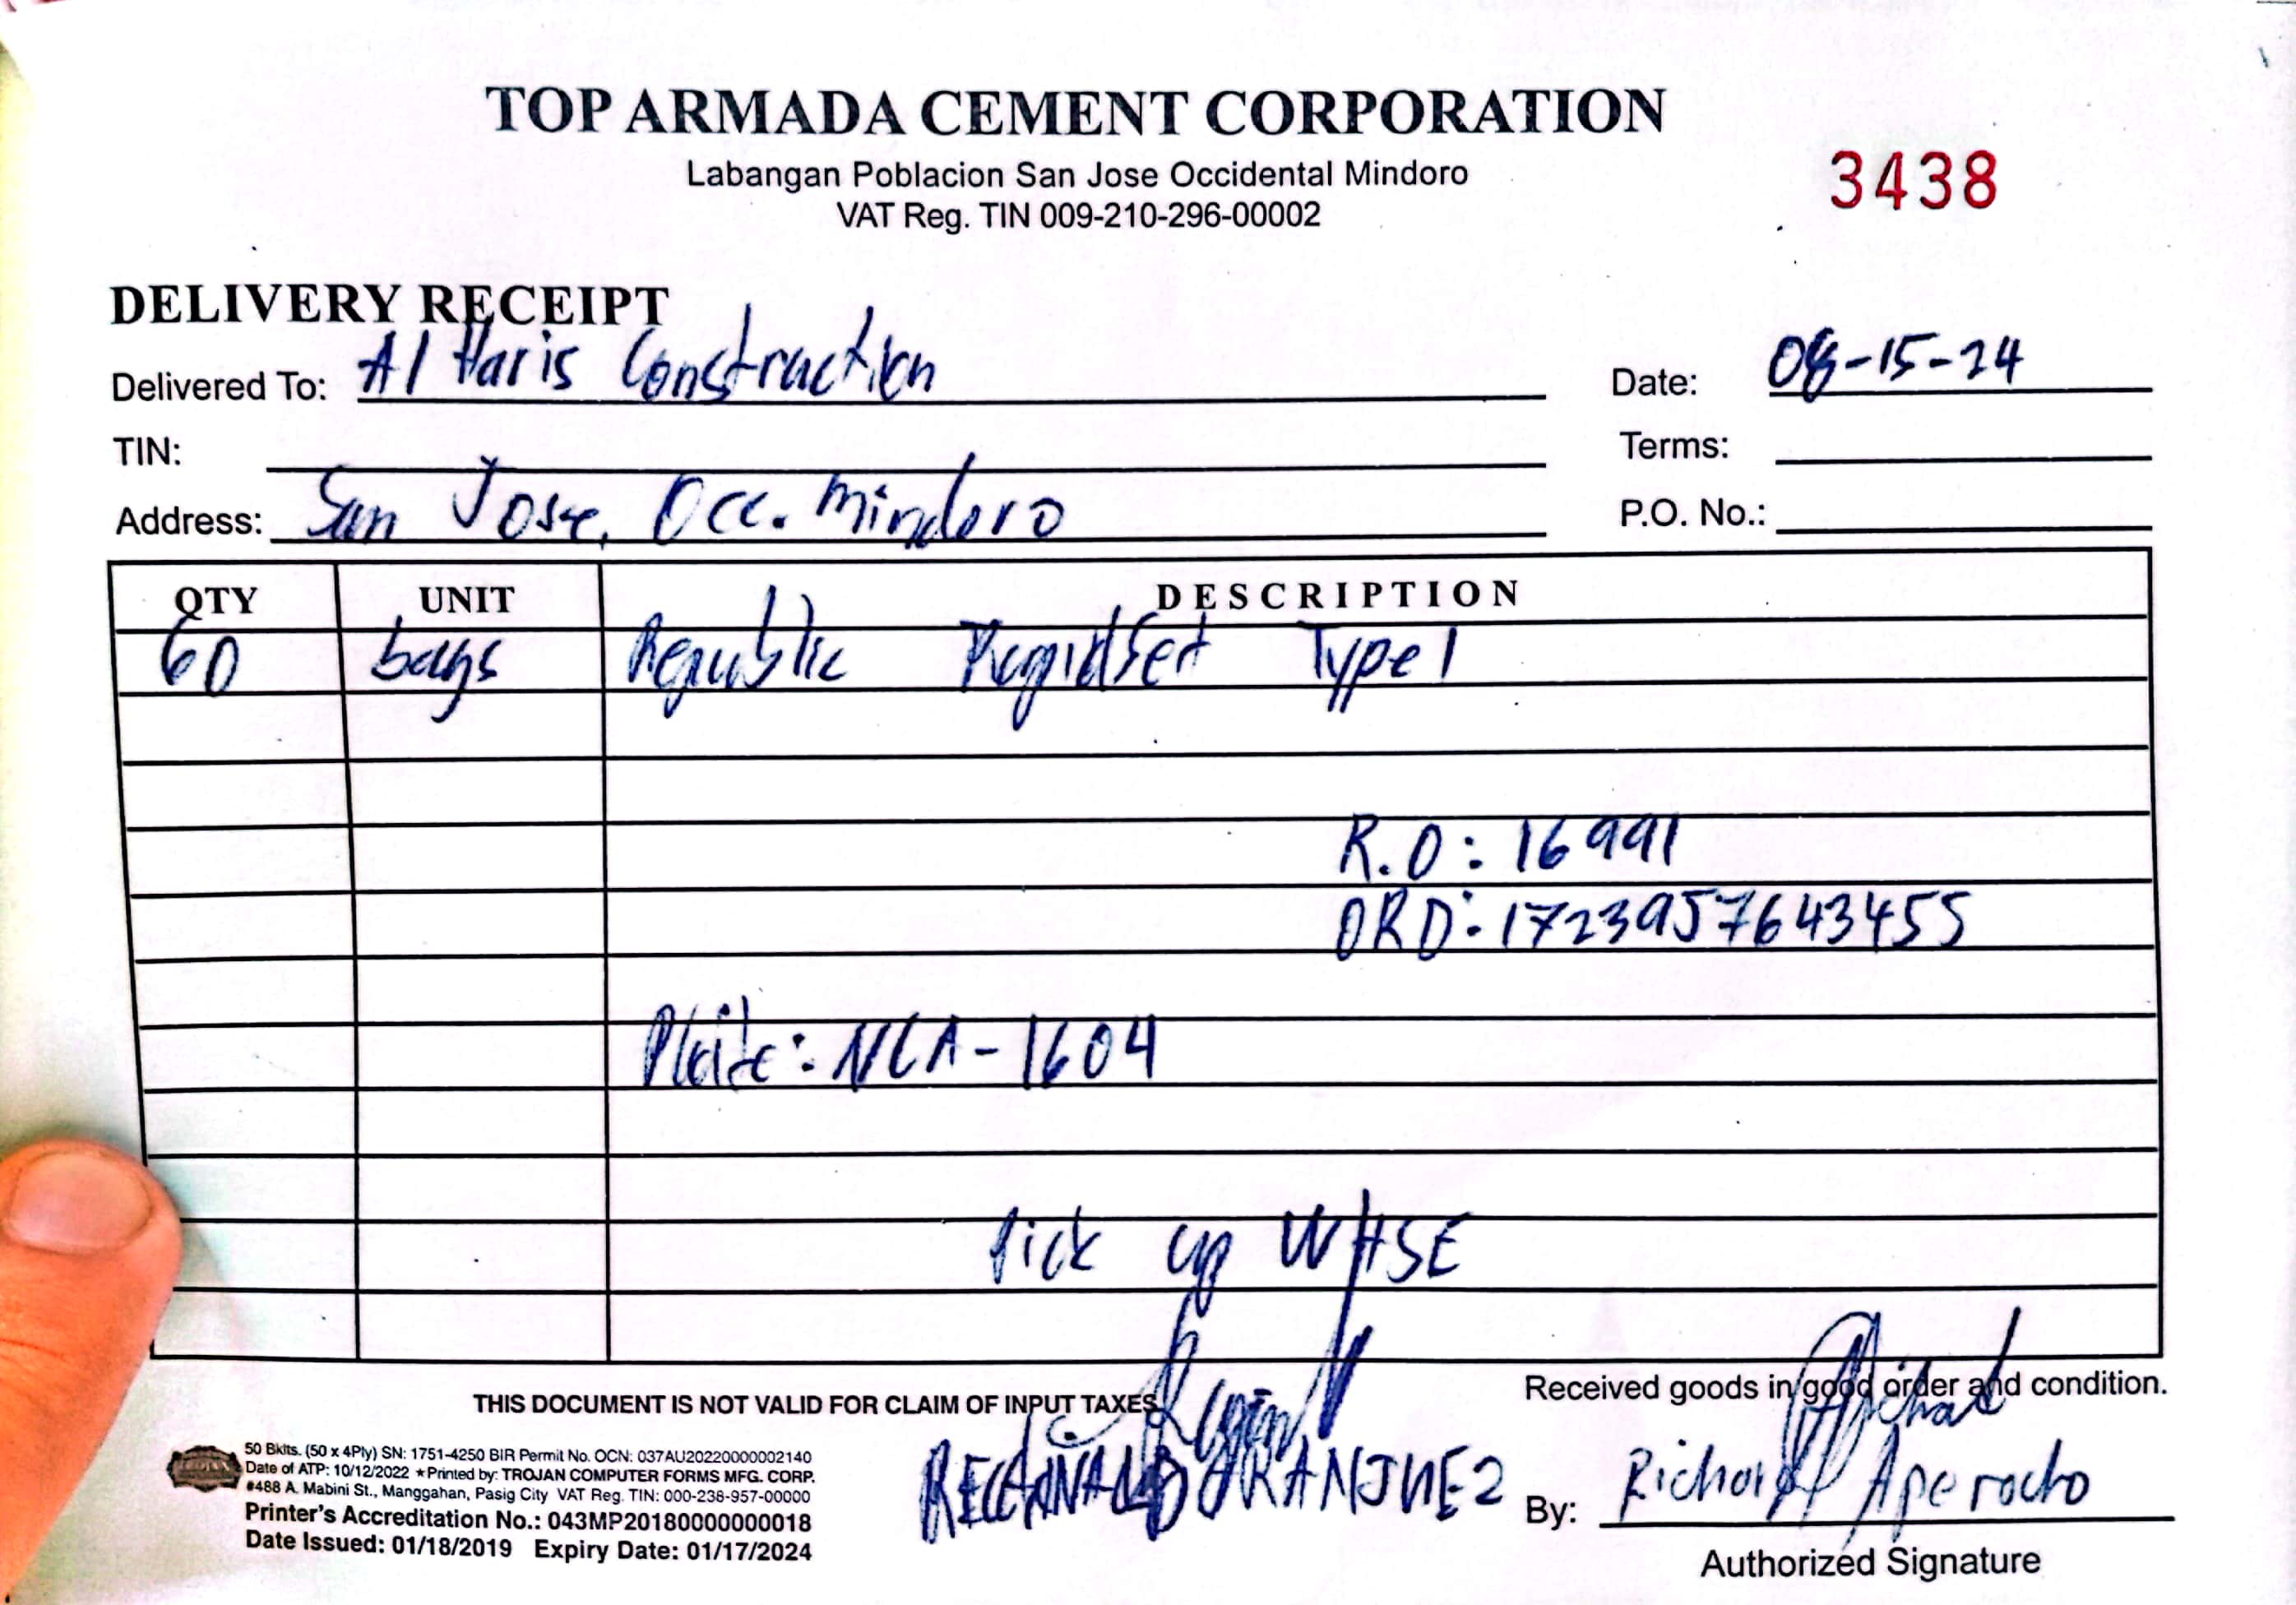 TOP ARMADA CEMENT CORPORATION
Labangan Poblacion San Jose Occidental Mindoro
VAT Reg. TIN 009-210-296-00002
3438
DELIVERY RECEIPT
Delivered To: Al Haris Construction
Date: 08-15-24
TIN:
Terms:
Address: San Jose, Occ. Mindoro
P.O. No.:
QTY UNIT DESCRIPTION
60 bags Republic Type 1
R.O: 16991
ORD: 1723957643455
Plate: NCA-1604
Pick up WHSE
THIS DOCUMENT IS NOT VALID FOR CLAIM OF INPUT TAXES
Received goods in good order and condition.
50 Bklts. (50 x 4Ply) SN: 1751-4250 BIR Permit No. OCN: 037AU20220000002140
Date of ATP: 10/12/2022 ★Printed by: TROJAN COMPUTER FORMS MFG. CORP.
#488 A. Mabini St., Manggahan, Pasig City VAT Reg. TIN: 000-238-957-00000
Printer's Accreditation No.: 043MP20180000000018
Date Issued: 01/18/2019 Expiry Date: 01/17/2024
ARANJUEZ
By: Richard Aperocho
Authorized Signature